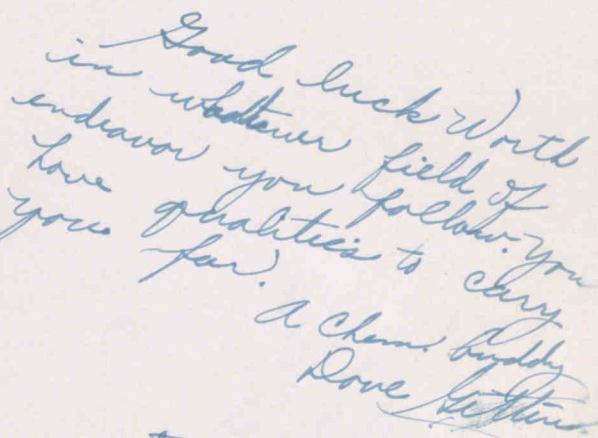 Good luck Worth
in whatever field of
endeavor you follow. you
have qualities to cary
you far.
A Chem. buddy
Dave